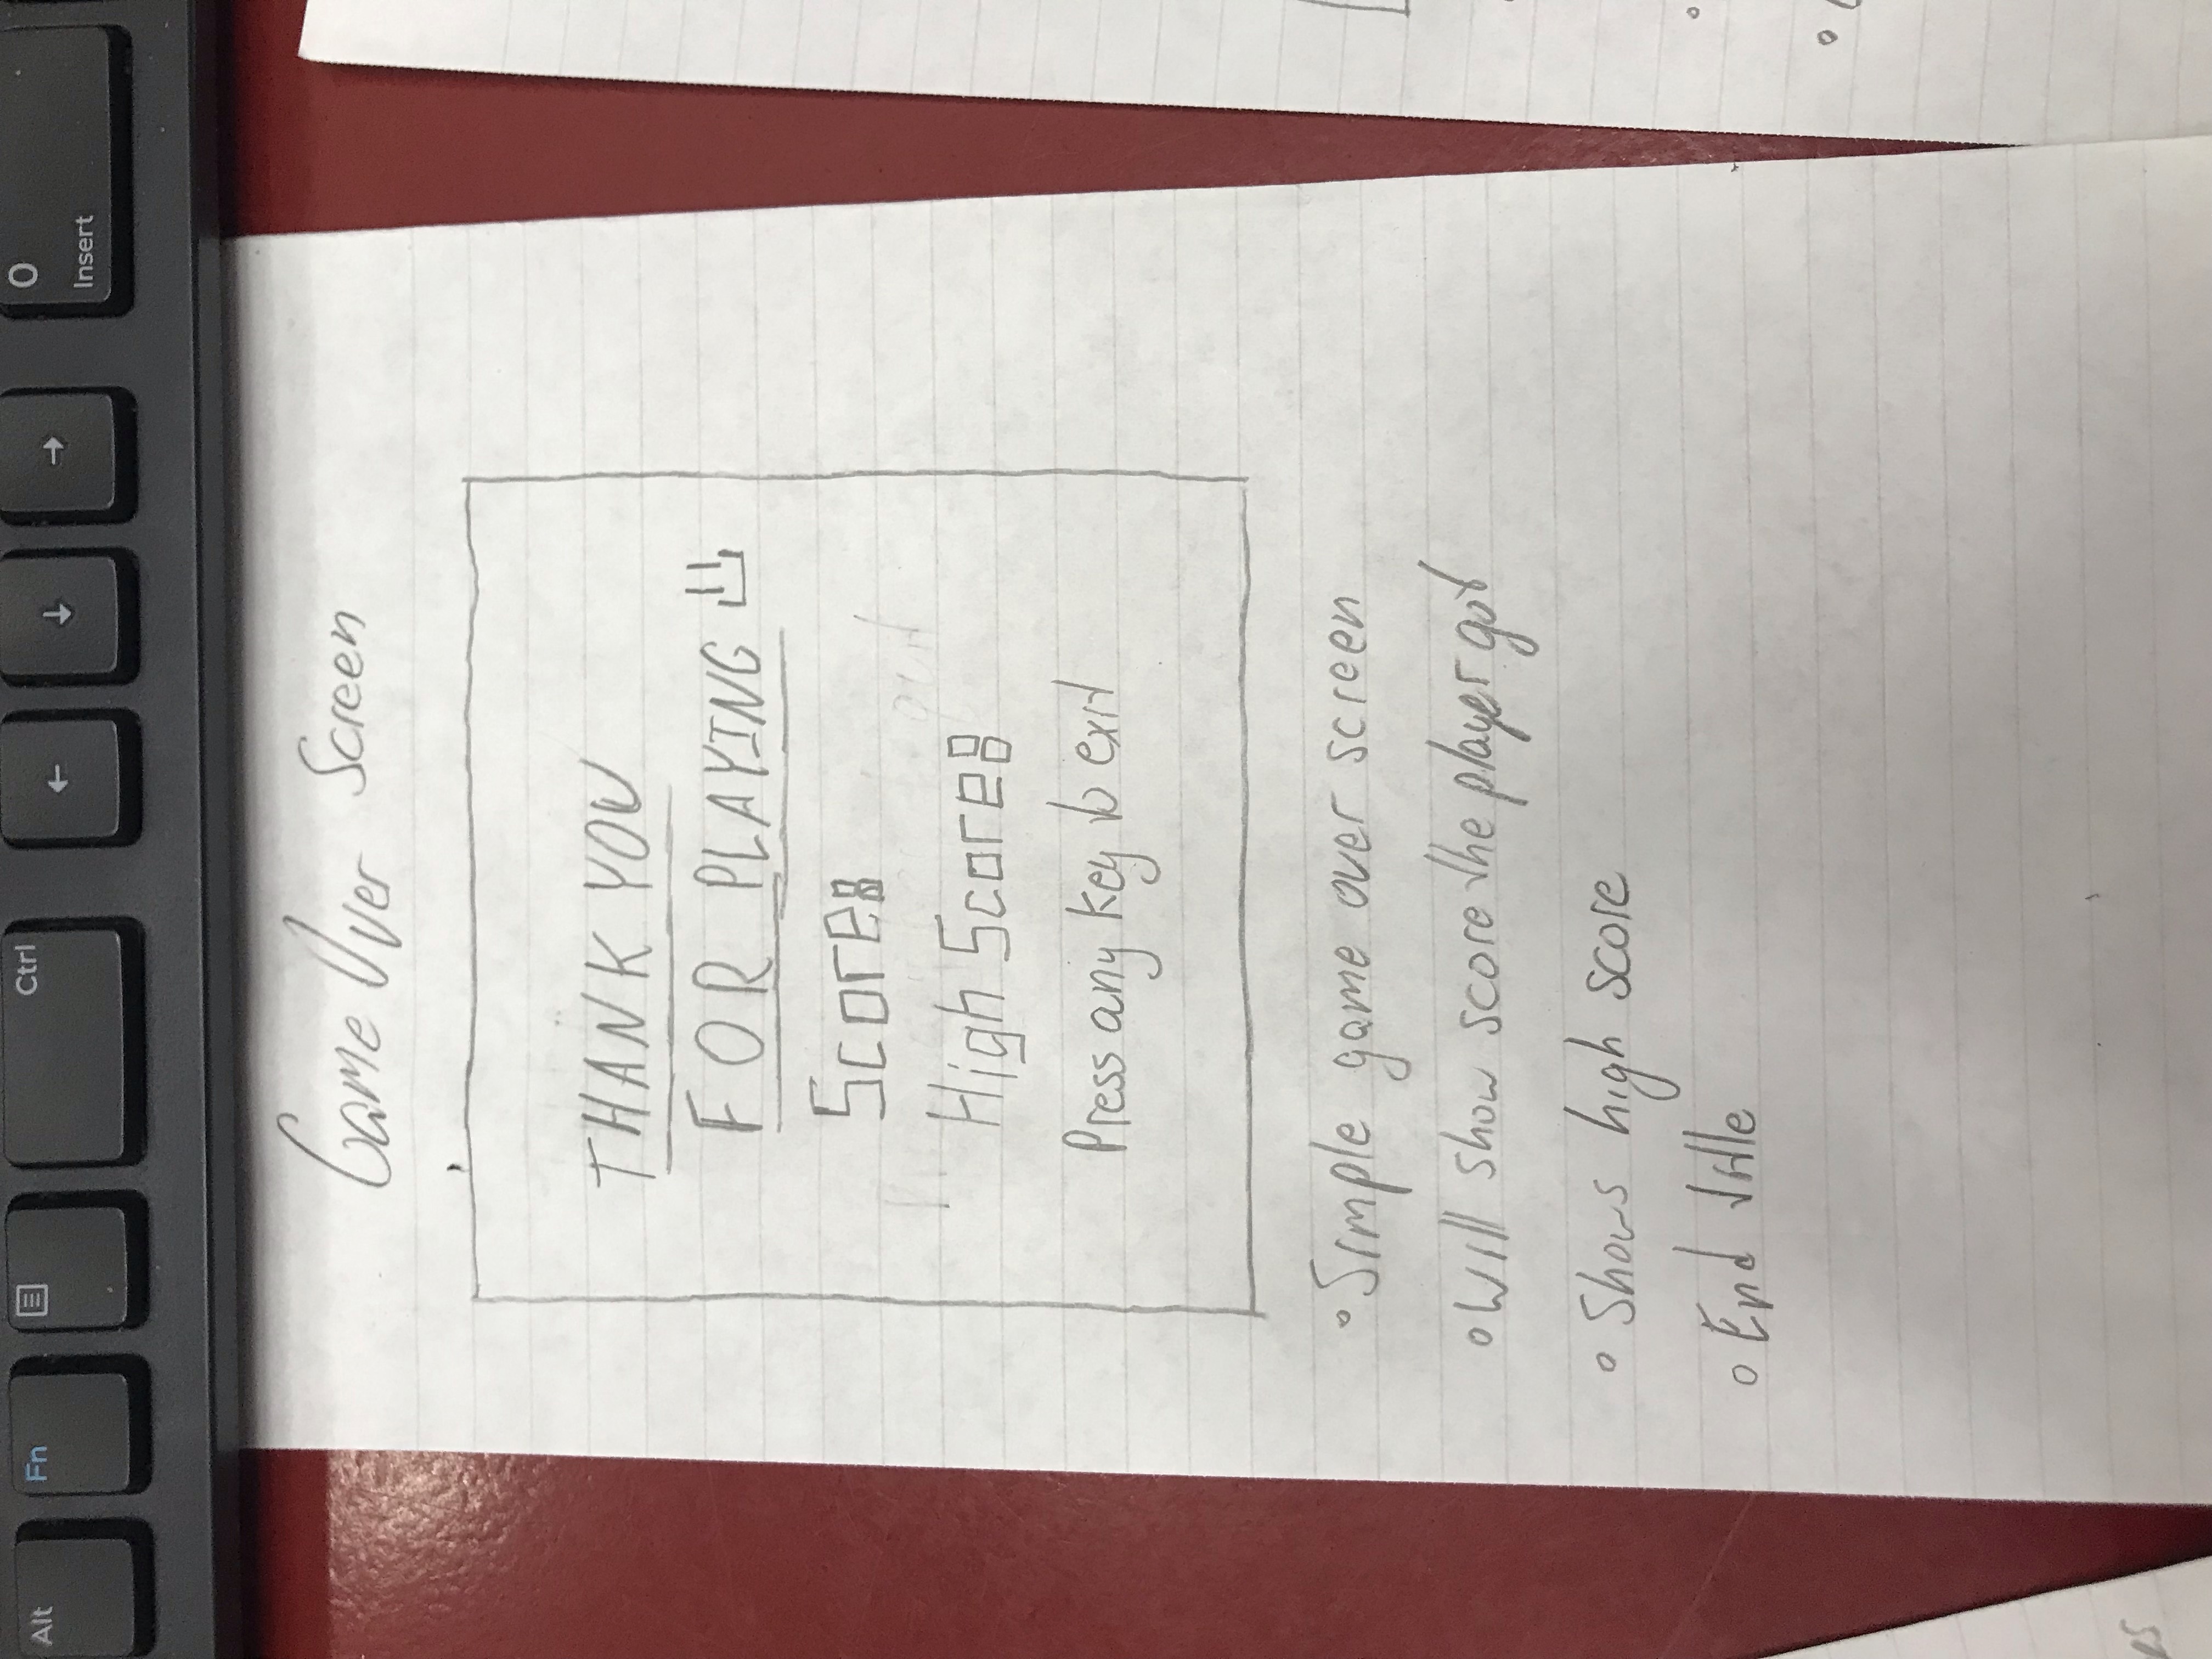 Alt Fn Ctrl ← ↓ → 0
Insert
Game Over Screen
THANK YOU
FOR PLAYING
Score:
High Score:
Press any key to exit
• Simple game over screen
• Will show score the player got
• Shows high score
• End title